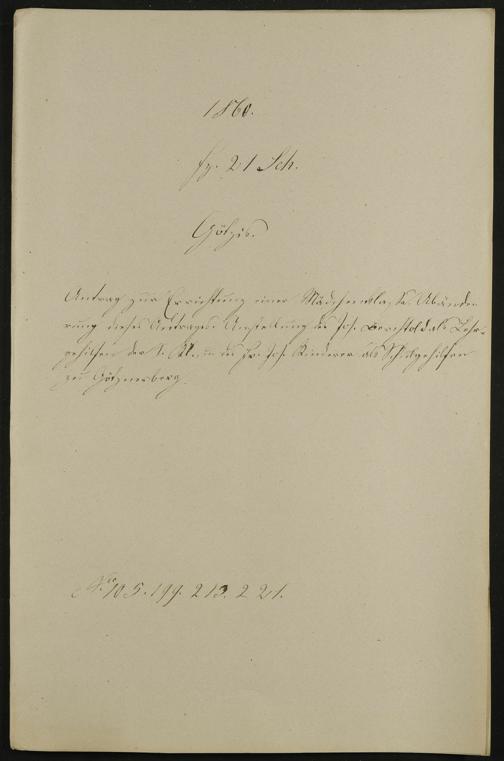 1860.
fz. 21 Sch.
Götzis.
Antrag zur Errichtung einer Mädchenklasse. Abände
rung dieses Antrages. Anstellung des Jos. Berchtold als Lehr-
gehilfen der I. Kl. u. des Fr. Jos. Kinderer als Schulgehilfen
zu Götznerberg.
Nro 105. 199. 213. 221.